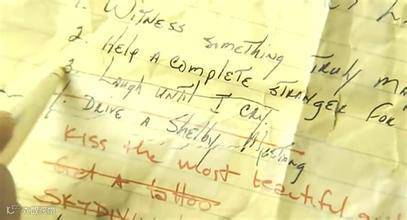 1. Witness something truly
2. Help a complete stranger for
3. Laugh until I cry
4. Drive a Shelby Mustang
Kiss the most beautiful
Get a tattoo